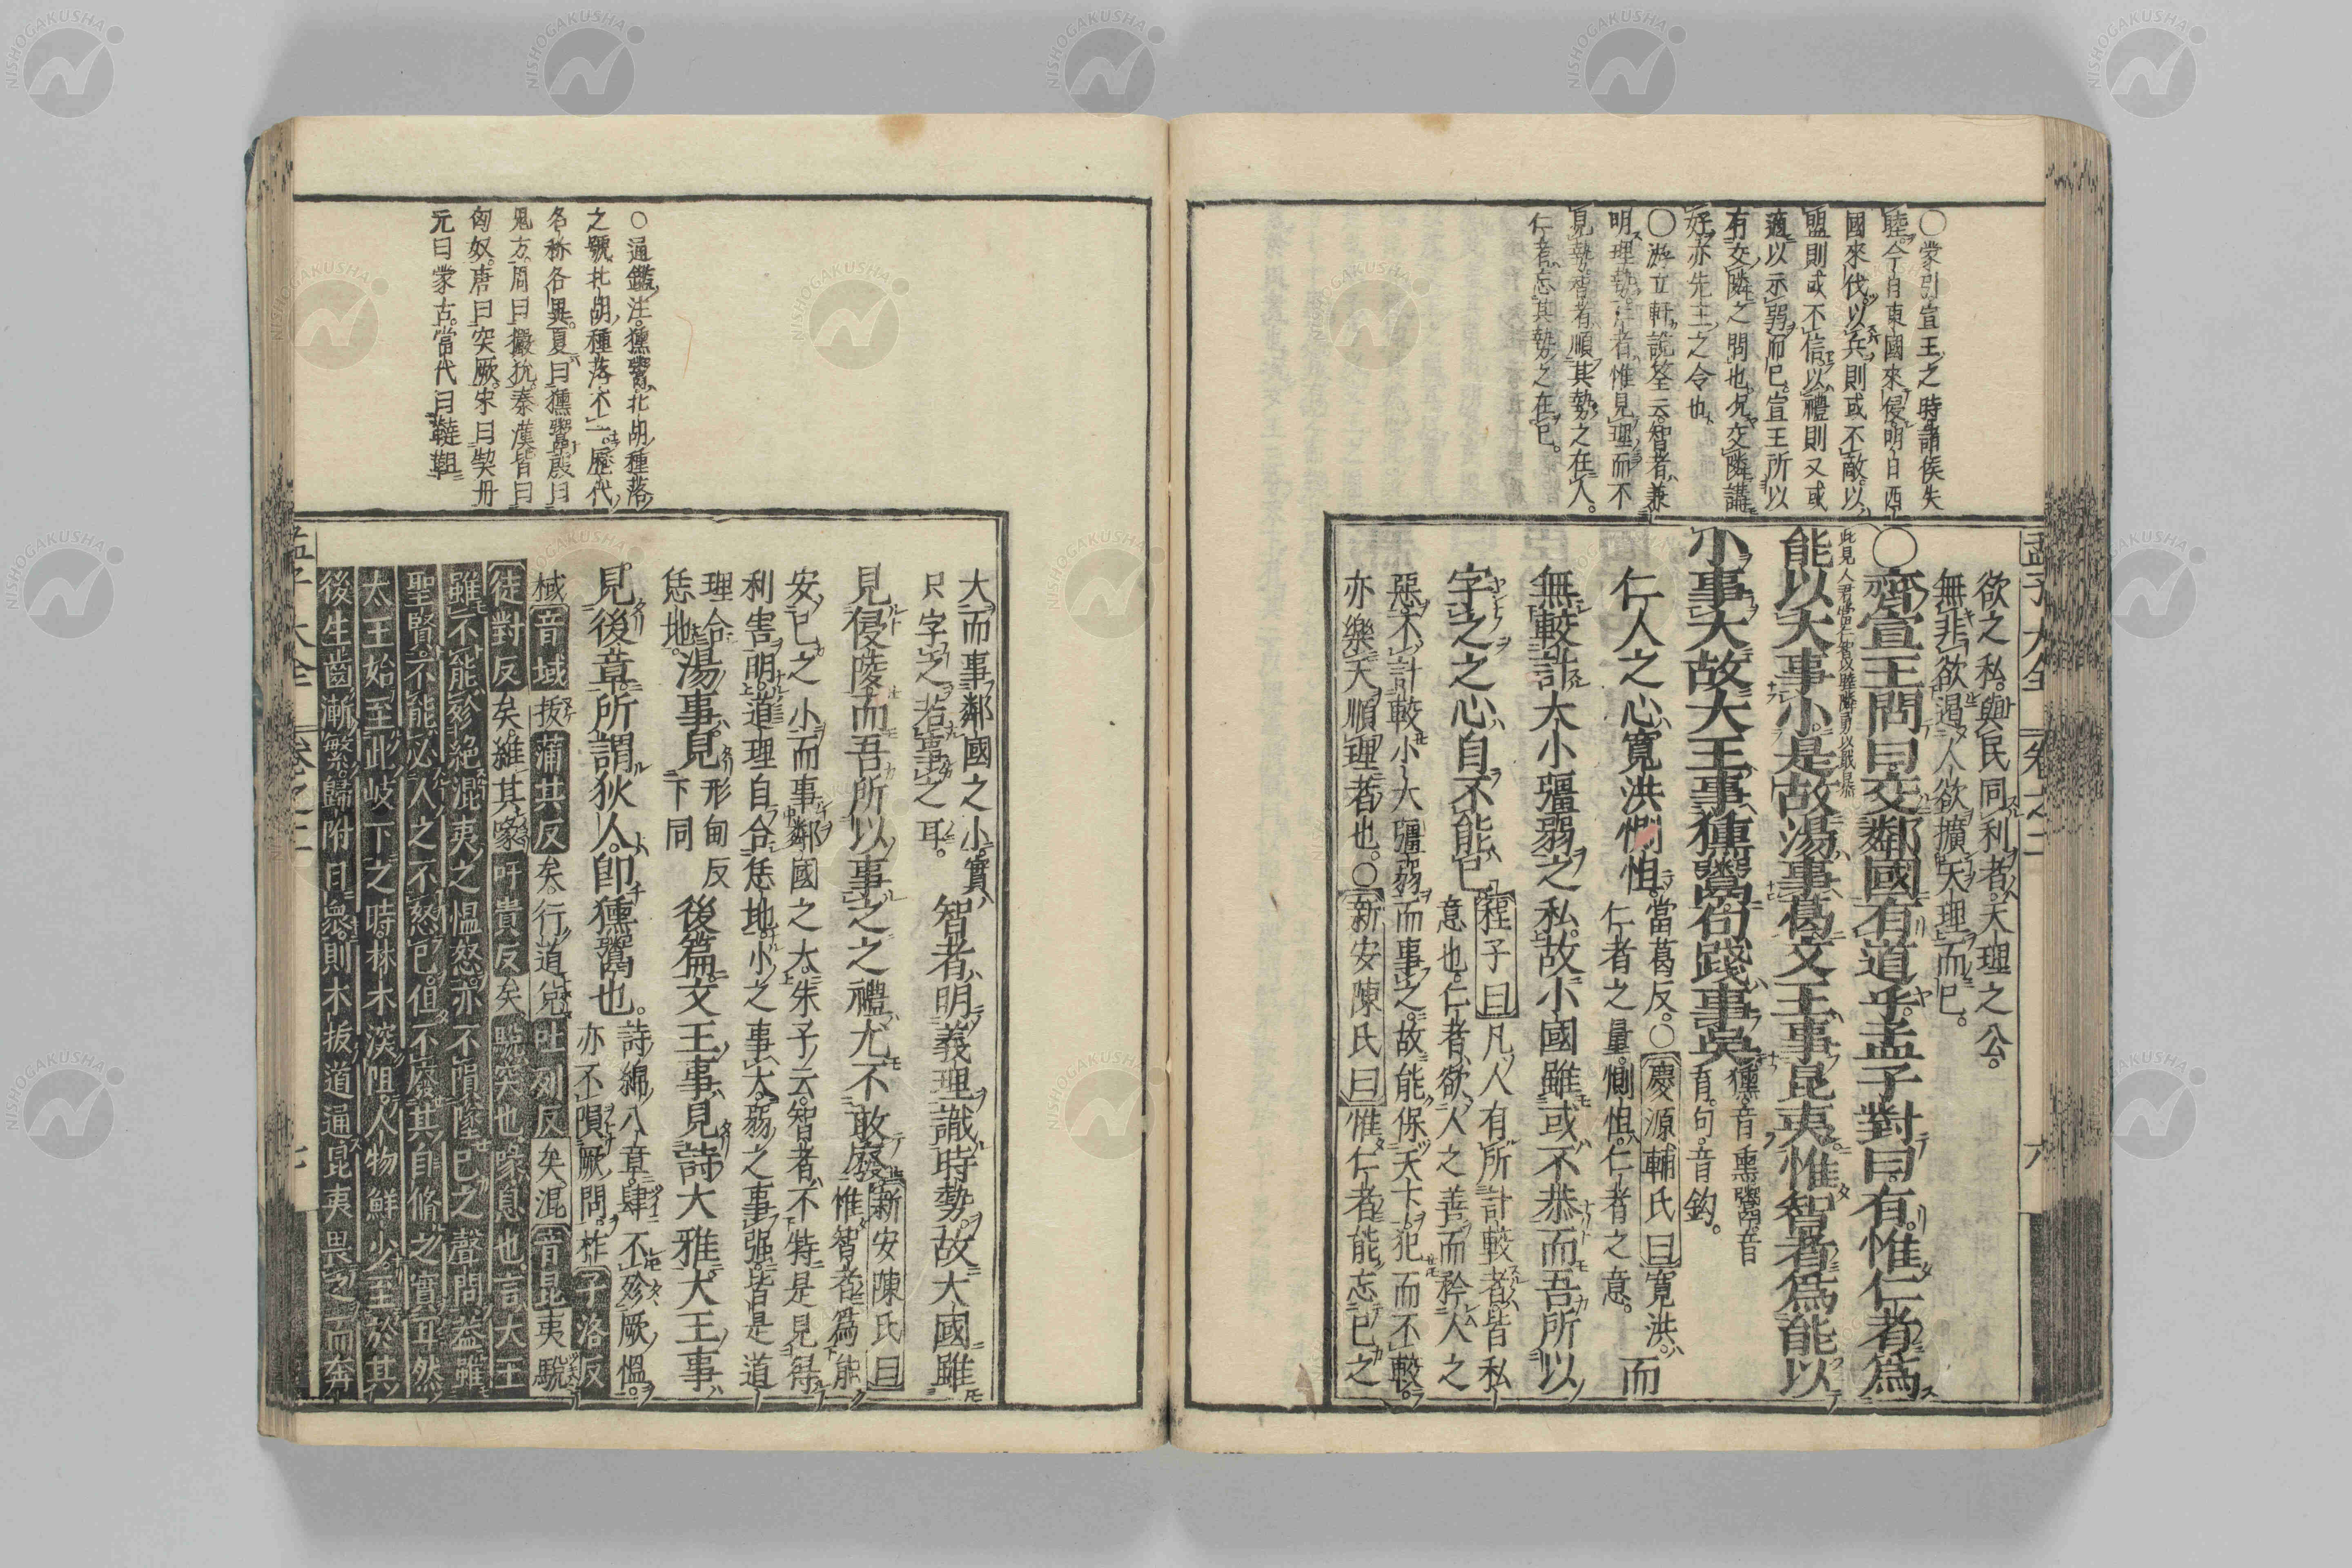 ○蒙引宣王之時諸侯失
睦今日東國來侵明日西
國來伐以兵則或不敵以
盟則或不信以禮則又或
適以示弱而已宣王所以
有交隣之問也况交隣講
好亦先王之令也
○游立軒說筌云智者兼
明理勢仁者惟見理而不
見勢智者順其勢之在人
仁者忘其勢之在已
孟子大全 卷之二 六
欲之私與民同利者天理之公
無非欲遏人欲擴天理而已
○齊宣王問曰交鄰國有道乎孟子對曰有惟仁者爲
能以大事小是故湯事葛文王事昆夷惟智者爲能以
小事大故大王事獯鬻句踐事吳
獯音熏鬻音
育句音鉤
仁人之心寬洪惻怛
當葛反○慶源輔氏曰寬洪
仁者之量惻怛仁者之意
而
無較計大小彊弱之私故小國雖或不恭而吾所以
字之之心自不能已
程子曰凡人有所計較者皆私
意也仁者欲人之善而矜人之
惡不計較小大彊弱而事之故能保天下犯而不較
亦樂天順理者也○新安陳氏曰惟仁者能忘已之
大而事鄰國之小實
只字之若事之耳
智者明義理識時勢故大國雖
見侵陵而吾所以事之之禮尤不敢廢
新安陳氏曰
惟智者爲能
安已之小而事鄰國之大朱子云智者不特是見得
利害明道理自合恁地小之事大弱之事强皆是道
理合
恁地
湯事見
形甸反
下同
後篇文王事見詩大雅大王事
見後章所謂狄人卽獯鬻也
詩綿八章肆不殄厥慍
亦不隕厥問柞子洛反
棫音域拔蒲貝反矣行道兌吐外反矣混音昆夷駾
徒對反矣維其喙吁貴反矣駾突也喙息也言大王
雖不能殄絶混夷之慍怒亦不隕墜已之聲問蓋雖
聖賢不能必人之不怒已但不廢其自脩之實耳然
太王始至此岐下之時林木深阻人物鮮少至於其
後生齒漸繁歸附日衆則木拔道通昆夷畏之而奔
○通鑑注獯鬻北胡種落
之號北胡種落不一歷代
名称各異夏曰獯鬻殷曰
鬼方周曰玁狁秦漢皆曰
匈奴唐曰突厥宋曰契丹
元曰蒙古當代曰韃靼